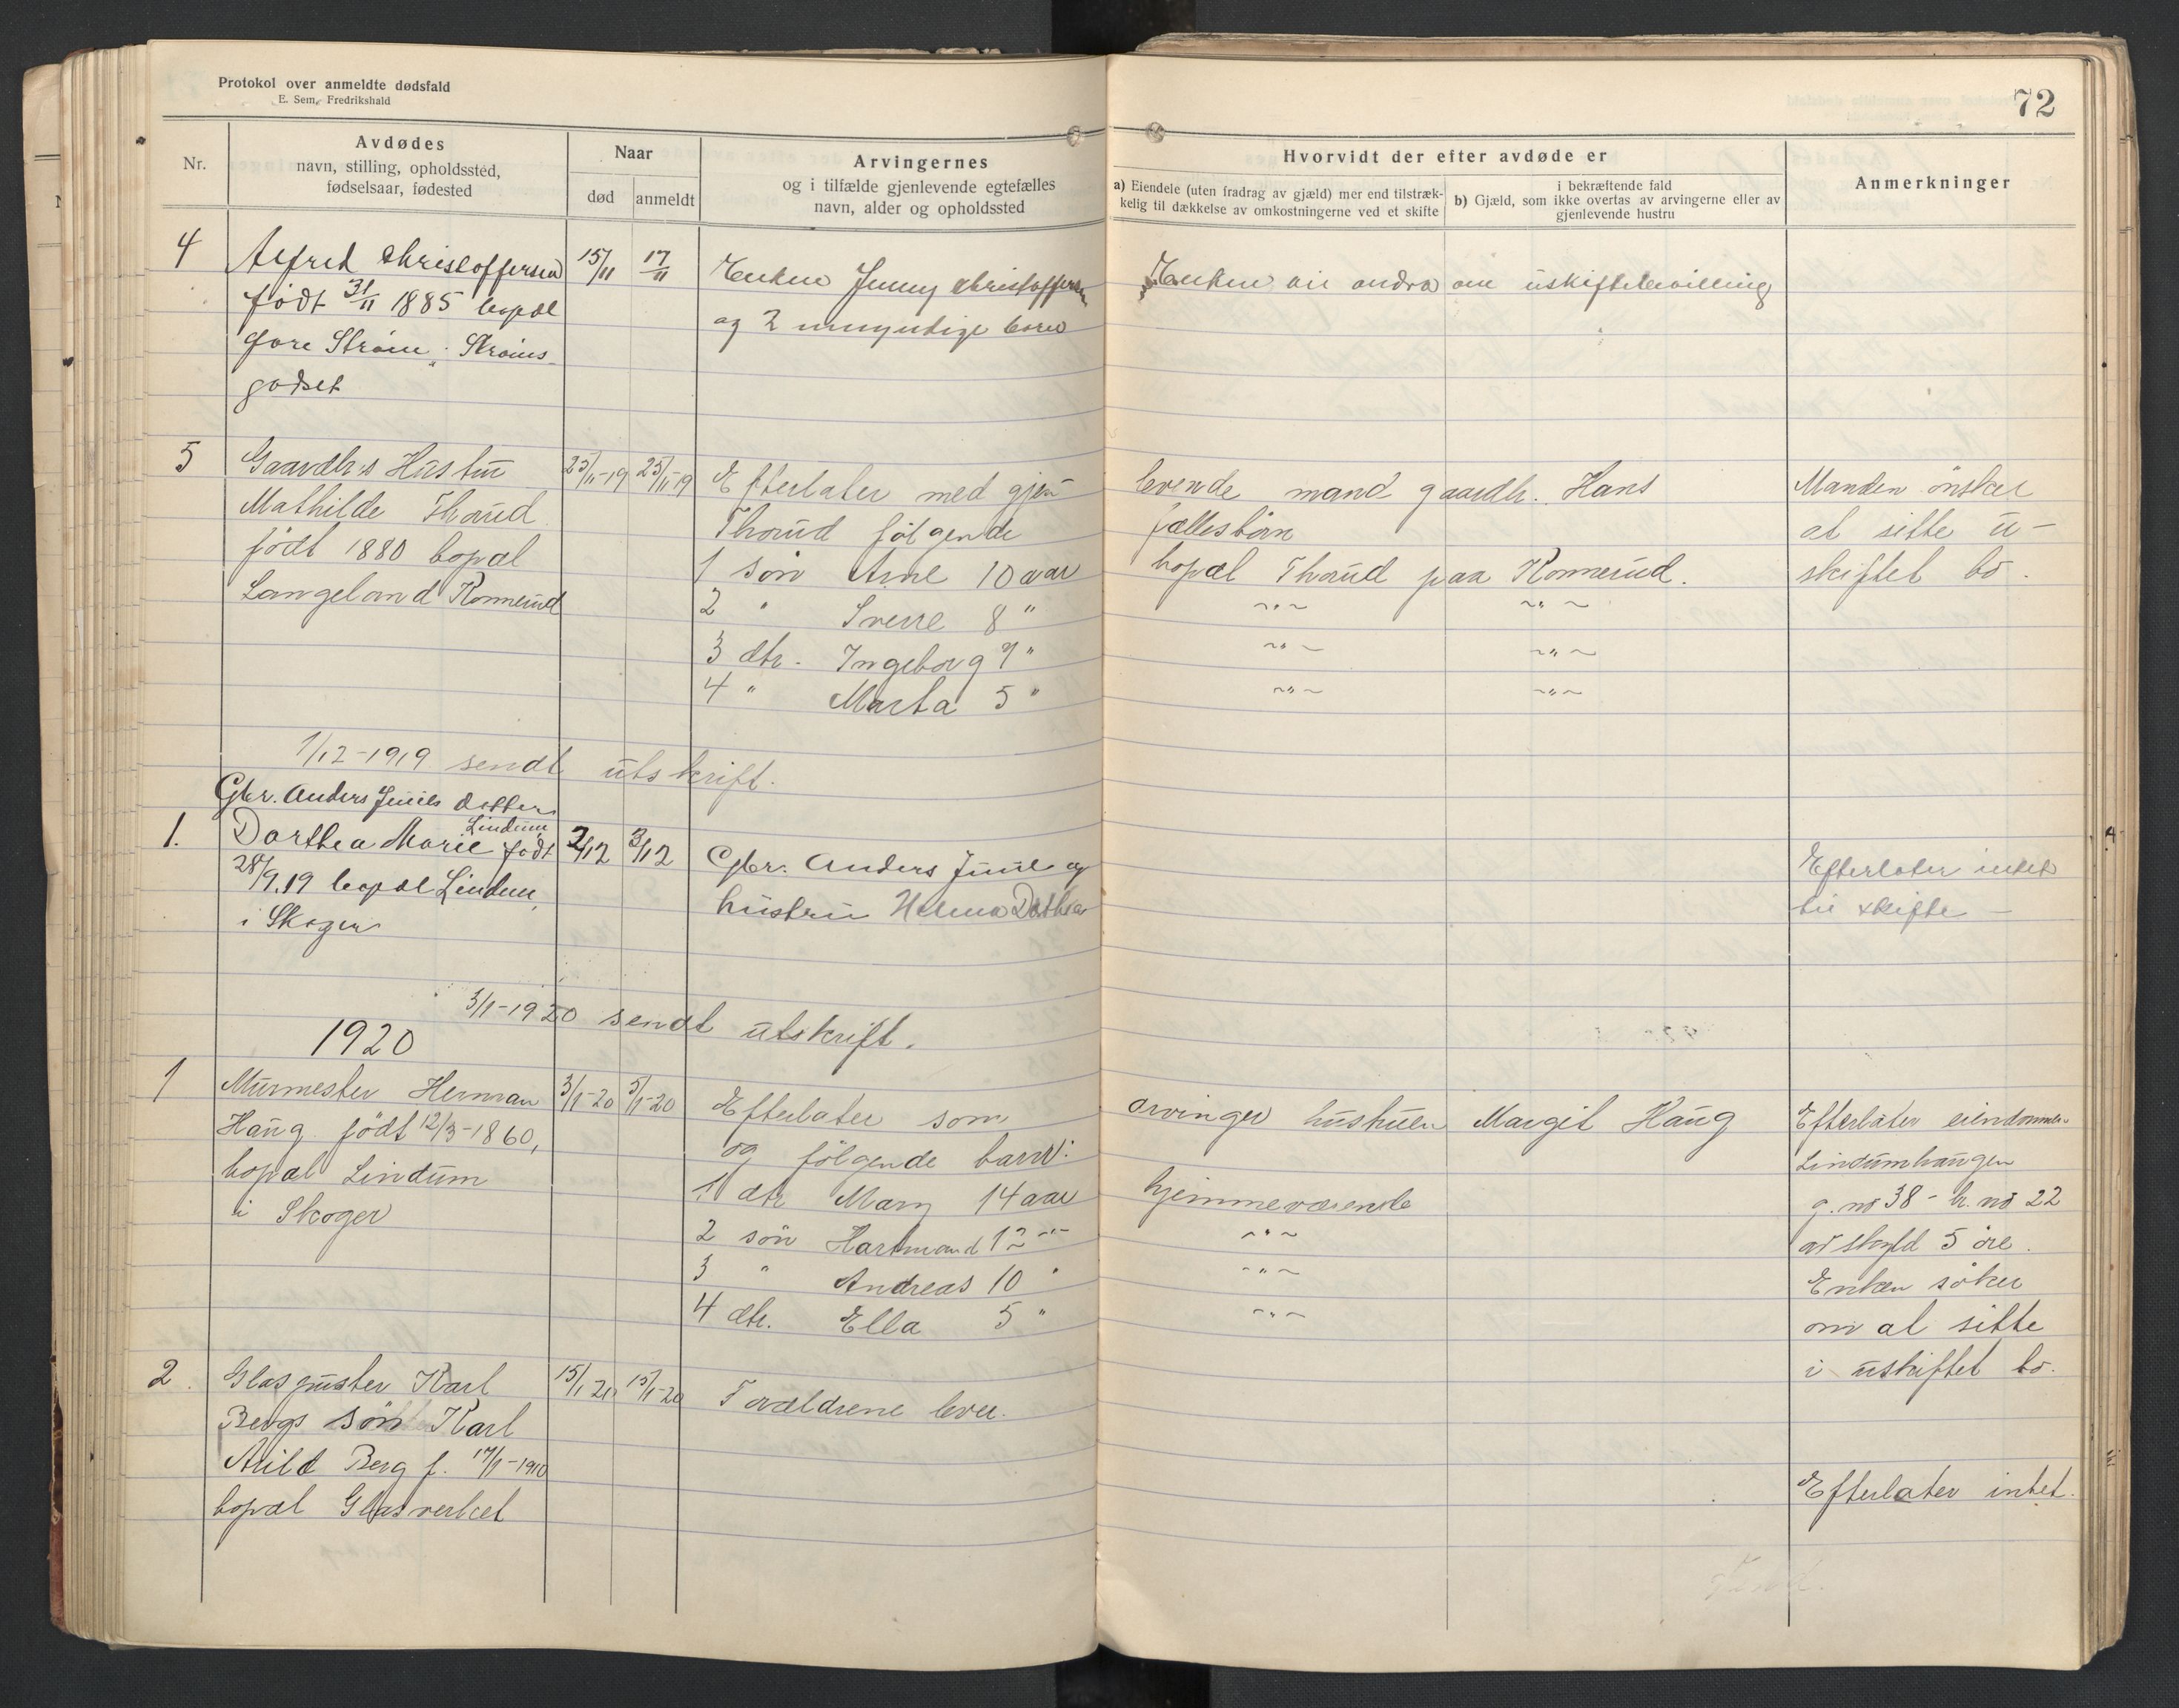 Protokol over anmeldte dødsfald
E. Sem, Fredrikshald
72
Nr.
Avdødes
navn, stilling, opholdssted,
fødselsaar, fødested
Naar
død
anmeldt
Arvingernes
og i tilfælde gjenlevende egtefælles
navn, alder og opholdssted
Hvorvidt der efter avdøde er
a) Eiendele (uten fradrag av gjæld) mer end tilstræk-
kelig til dækkelse av omkostningerne ved et skifte
i bekræftende fald
b) Gjæld, som ikke overtas av arvingerne eller av
gjenlevende hustru
Anmerkninger
4
Alfred Christoffersen
født 31/11 1885 bopæl
Gore Strøm, Strøms-
godset
15/11
17/11
Enken Jenny Christoffersen
og 2 umyndige børn
Enken vil andra om uskiftebevilling
5
Gaardbr.s Hustru
Mathilde Thorud
født 1880 bopæl
Langeland Konnerud
25/11-19
25/11-19
Efterlater med gjen-
levende mand gaardbr. Hans
Thorud følgende
fællesbørn
1 søn Arne 10 aar
bopæl Thorud paa Konnerud.
2 " Sverre 8 "
~"~ ~"~
3 dtr. Ingeborg 7 "
~"~ ~"~
4 " Marta 5 "
~"~ ~"~
Manden ønsker
at sitte u-
skiftet bo.
1/12-1919 sendt utskrift.
Gbr. Anders Juuls datter
1.
Dorthea Marie Lindum født
28/9.19 bopæl Lindum,
i Skoger
2/12
3/12
Gbr. Anders Juul og
hustru Helma Dorthea
Efterlater intet
til skifte —
3/1-1920 sendt utskrift.
1920
1
Murmester Herman
Haug født 12/3-1860,
bopæl Lindum
i Skoger
3/1-20
5/1-20
Efterlater som
arvinger hustruen Margit Haug
og følgende barn:
1 dtr Mary 14 aar
hjemmeværende
2 søn Hartmand 12 "
~"~
3 " Andreas 10 "
~"~
4 dtr. Ella 5 "
~"~
Efterlater eiendommen
Lindumhaugen
g. no 38 - br. no 22
av skyld 5 øre.
Enken søker
om at sitte
i uskiftet bo.
2.
Glaspuster Karl
Bergs søn Karl
Arild Berg f. 17/1-1910
bopæl Glasverket
15/1 20
15/1-20
Forældrene lever.
Efterlater intet.